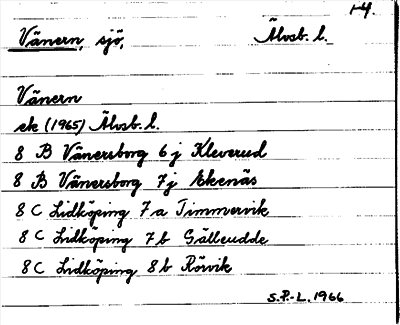 1-4.
Vänern, sjö, Älvsb. l.
Vänern
ek (1965) Älvsb. l.
8 B Vänersborg 6 j Kleverud
8 B Vänersborg 7 j Ekenäs
8 C Lidköping 7 a Timmervik
8 C Lidköping 7 b Gälleudde
8 C Lidköping 8 b Rörvik
S.P.-L. 1966